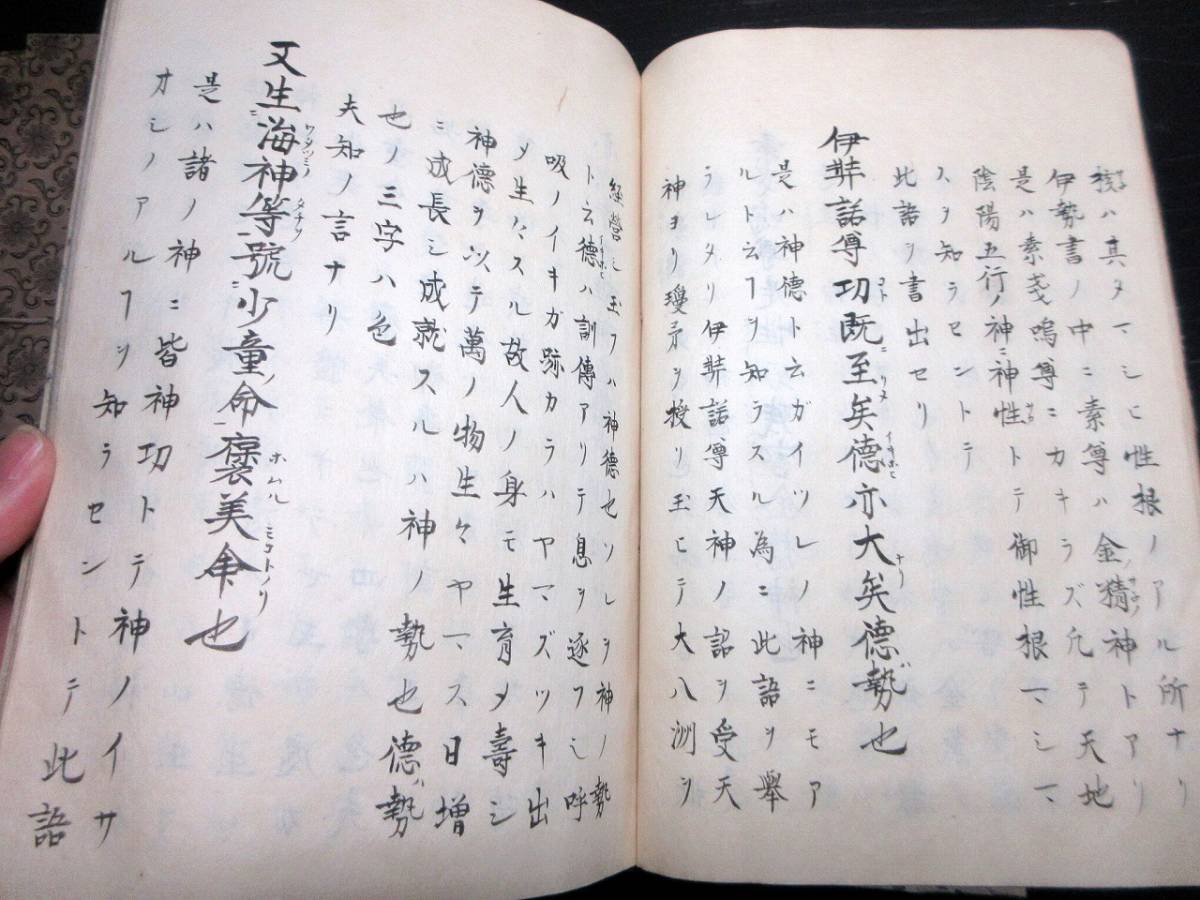 樹ハ其タマシヒ性根ノアル所ナリ
伊勢書ノ中ニ素尊ハ金ノ精神トアリ
是ハ素戔嗚尊ニカキラズ凡テ天地
陰陽五行ノ神ニ神性トテ御性根マシマ
スヲ知ラセントテ
此語ヲ書出セリ
伊弉諾尊功既至矣德亦大矣德勢也
是ハ神德ト云ガイツレノ神ニモア
ルト云フヿヲ知ラスル為ニ此語ヲ舉
ラレタリ伊弉諾尊天神ノ詔ヲ受天
神ヨリ瓊矛ヲ授リ玉ヒテ大八洲ヲ
経營シ玉フハ神德也ソレヲ神ノ勢
ト云德ハ訓傳アリテ息ヲ逐フ也呼
吸ノイキガ跡カラハヤマズツキ出
〆生々スル故人ノ身モ生育〆壽シ
神德ヲ以テ萬ノ物生々ヤマス日增
ニ成長シ成就スルハ神ノ勢也德ハ勢
也ノ三字ハ色
夫知ノ言ナリ
又生海神等號少童命褒美命也
是ハ諸ノ神ニ皆神功トテ神ノイサ
オシノアルヿヲ知ラセントテ此語